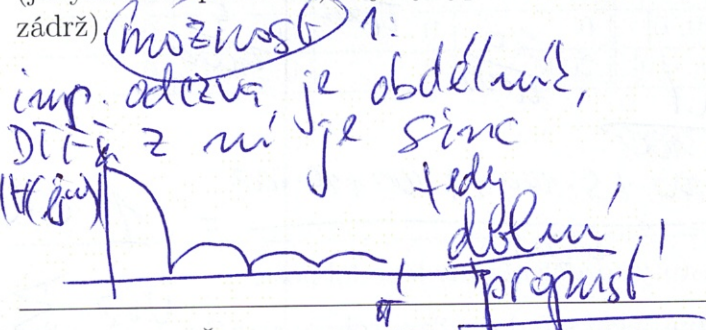 zádrž) možnost 1:
imp. odezva je obdélník,
DTFT z ní je sinc
|H(e^jω)| tedy
dolní
propust!
π